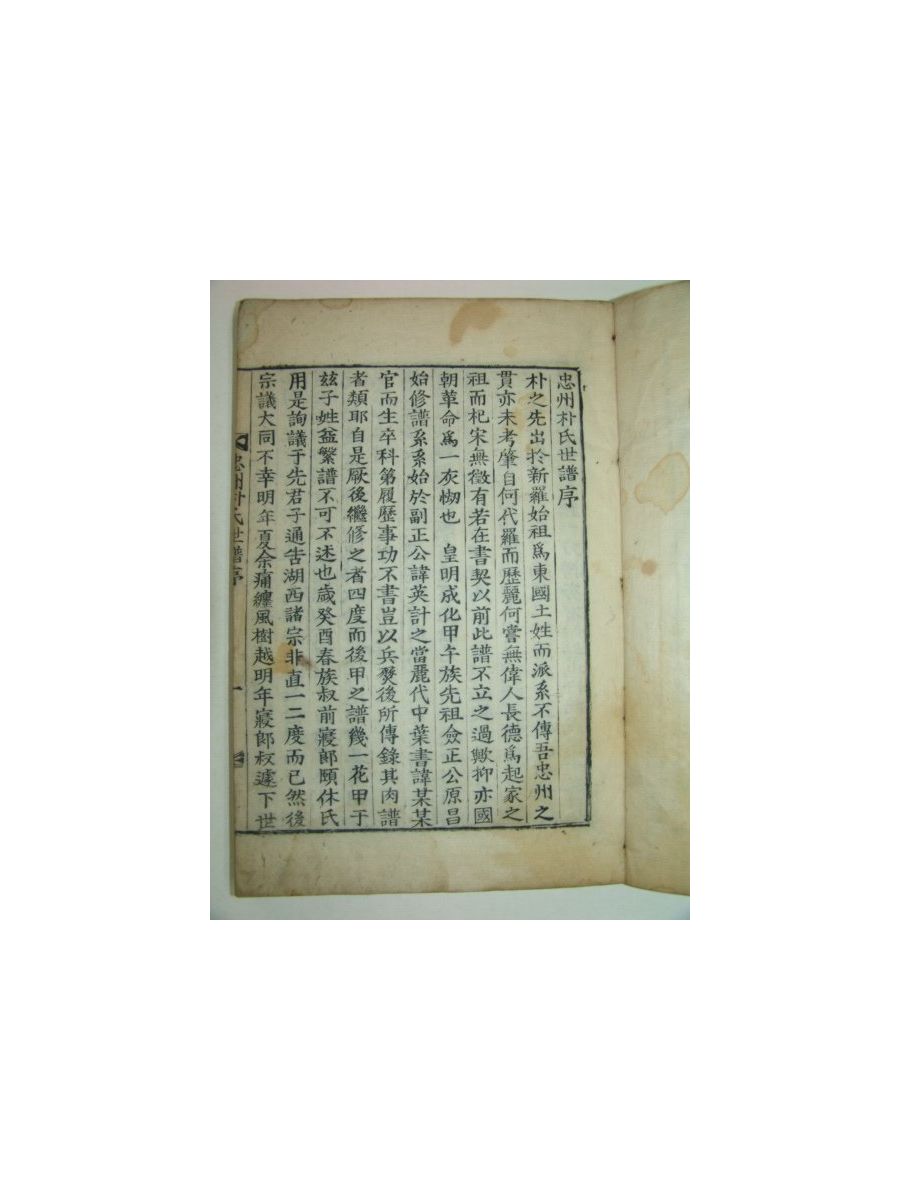 忠州朴氏世譜序
朴之先出於新羅始祖爲東國土姓而派系不傳吾忠州之
貫亦未考肇自何代羅而歷麗何嘗無偉人長德爲起家之
祖而杞宋無徵有若在書契以前此譜不立之過歟抑亦國
朝革命爲一灰㤼也 皇明成化甲午族先祖僉正公原昌
始修譜系系始於副正公諱英計之當麗代中葉書諱某某
官而生卒科第履歷事功不書豈以兵燹後所傳錄其肉譜
者類耶自是厥後繼修之者四度而後甲之譜幾一花甲于
玆子姓益繁譜不可不述也歲癸酉春族叔前寢郎頤休氏
用是詢議于先君子通告湖西諸宗非直一二度而已然後
宗議大同不幸明年夏余痛纏風樹越明年寢郎叔遽下世
忠州朴氏世譜序 一